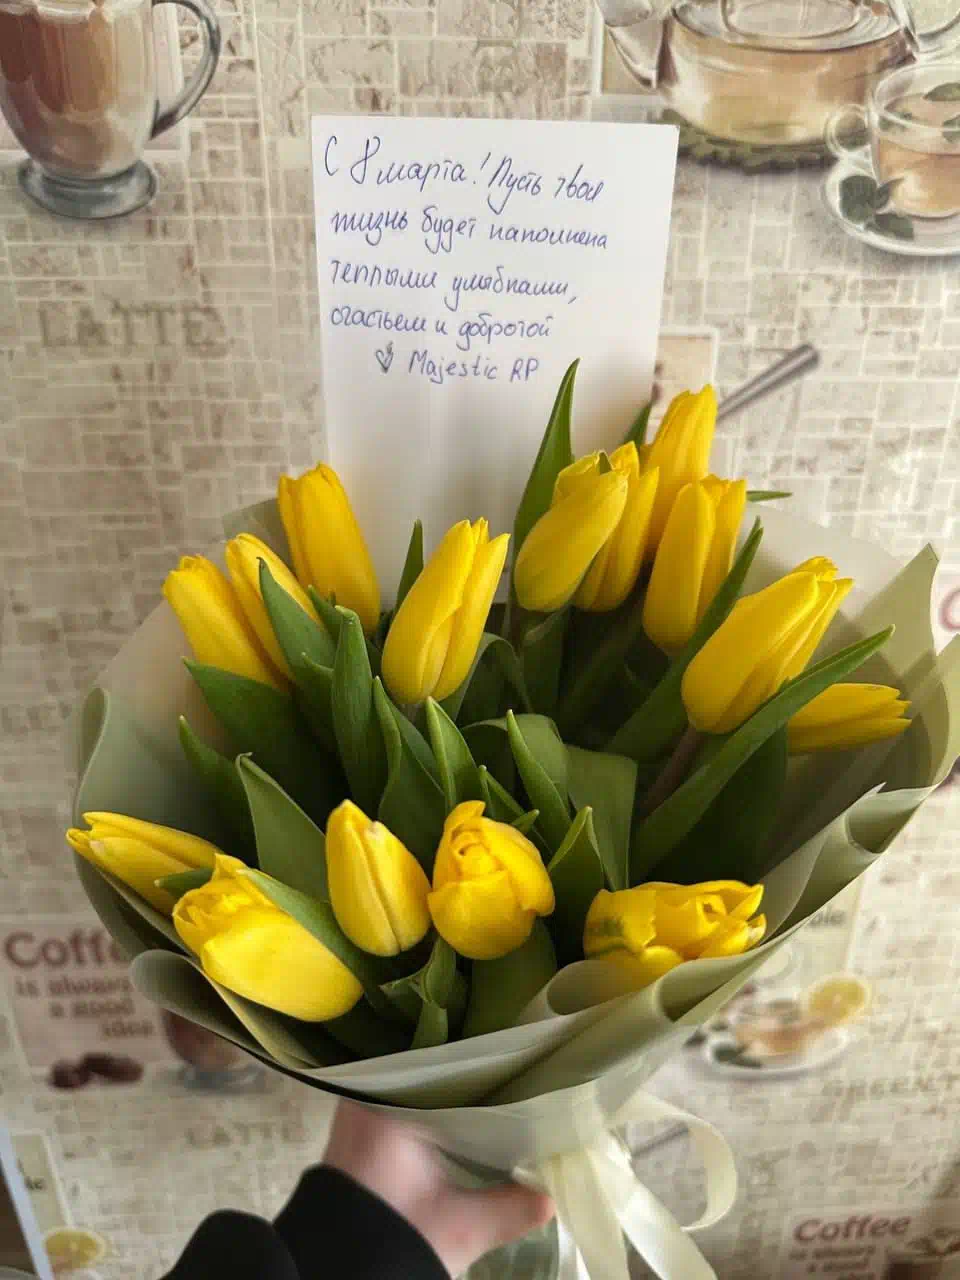 С 8 марта! Пусть твоя
жизнь будет наполнена
теплыми улыбками,
счастьем и добротой
Majestic RP
LATTE
Coffee
is always
a good
idea
GREEN T
LATTE
Coffee
is always
a good